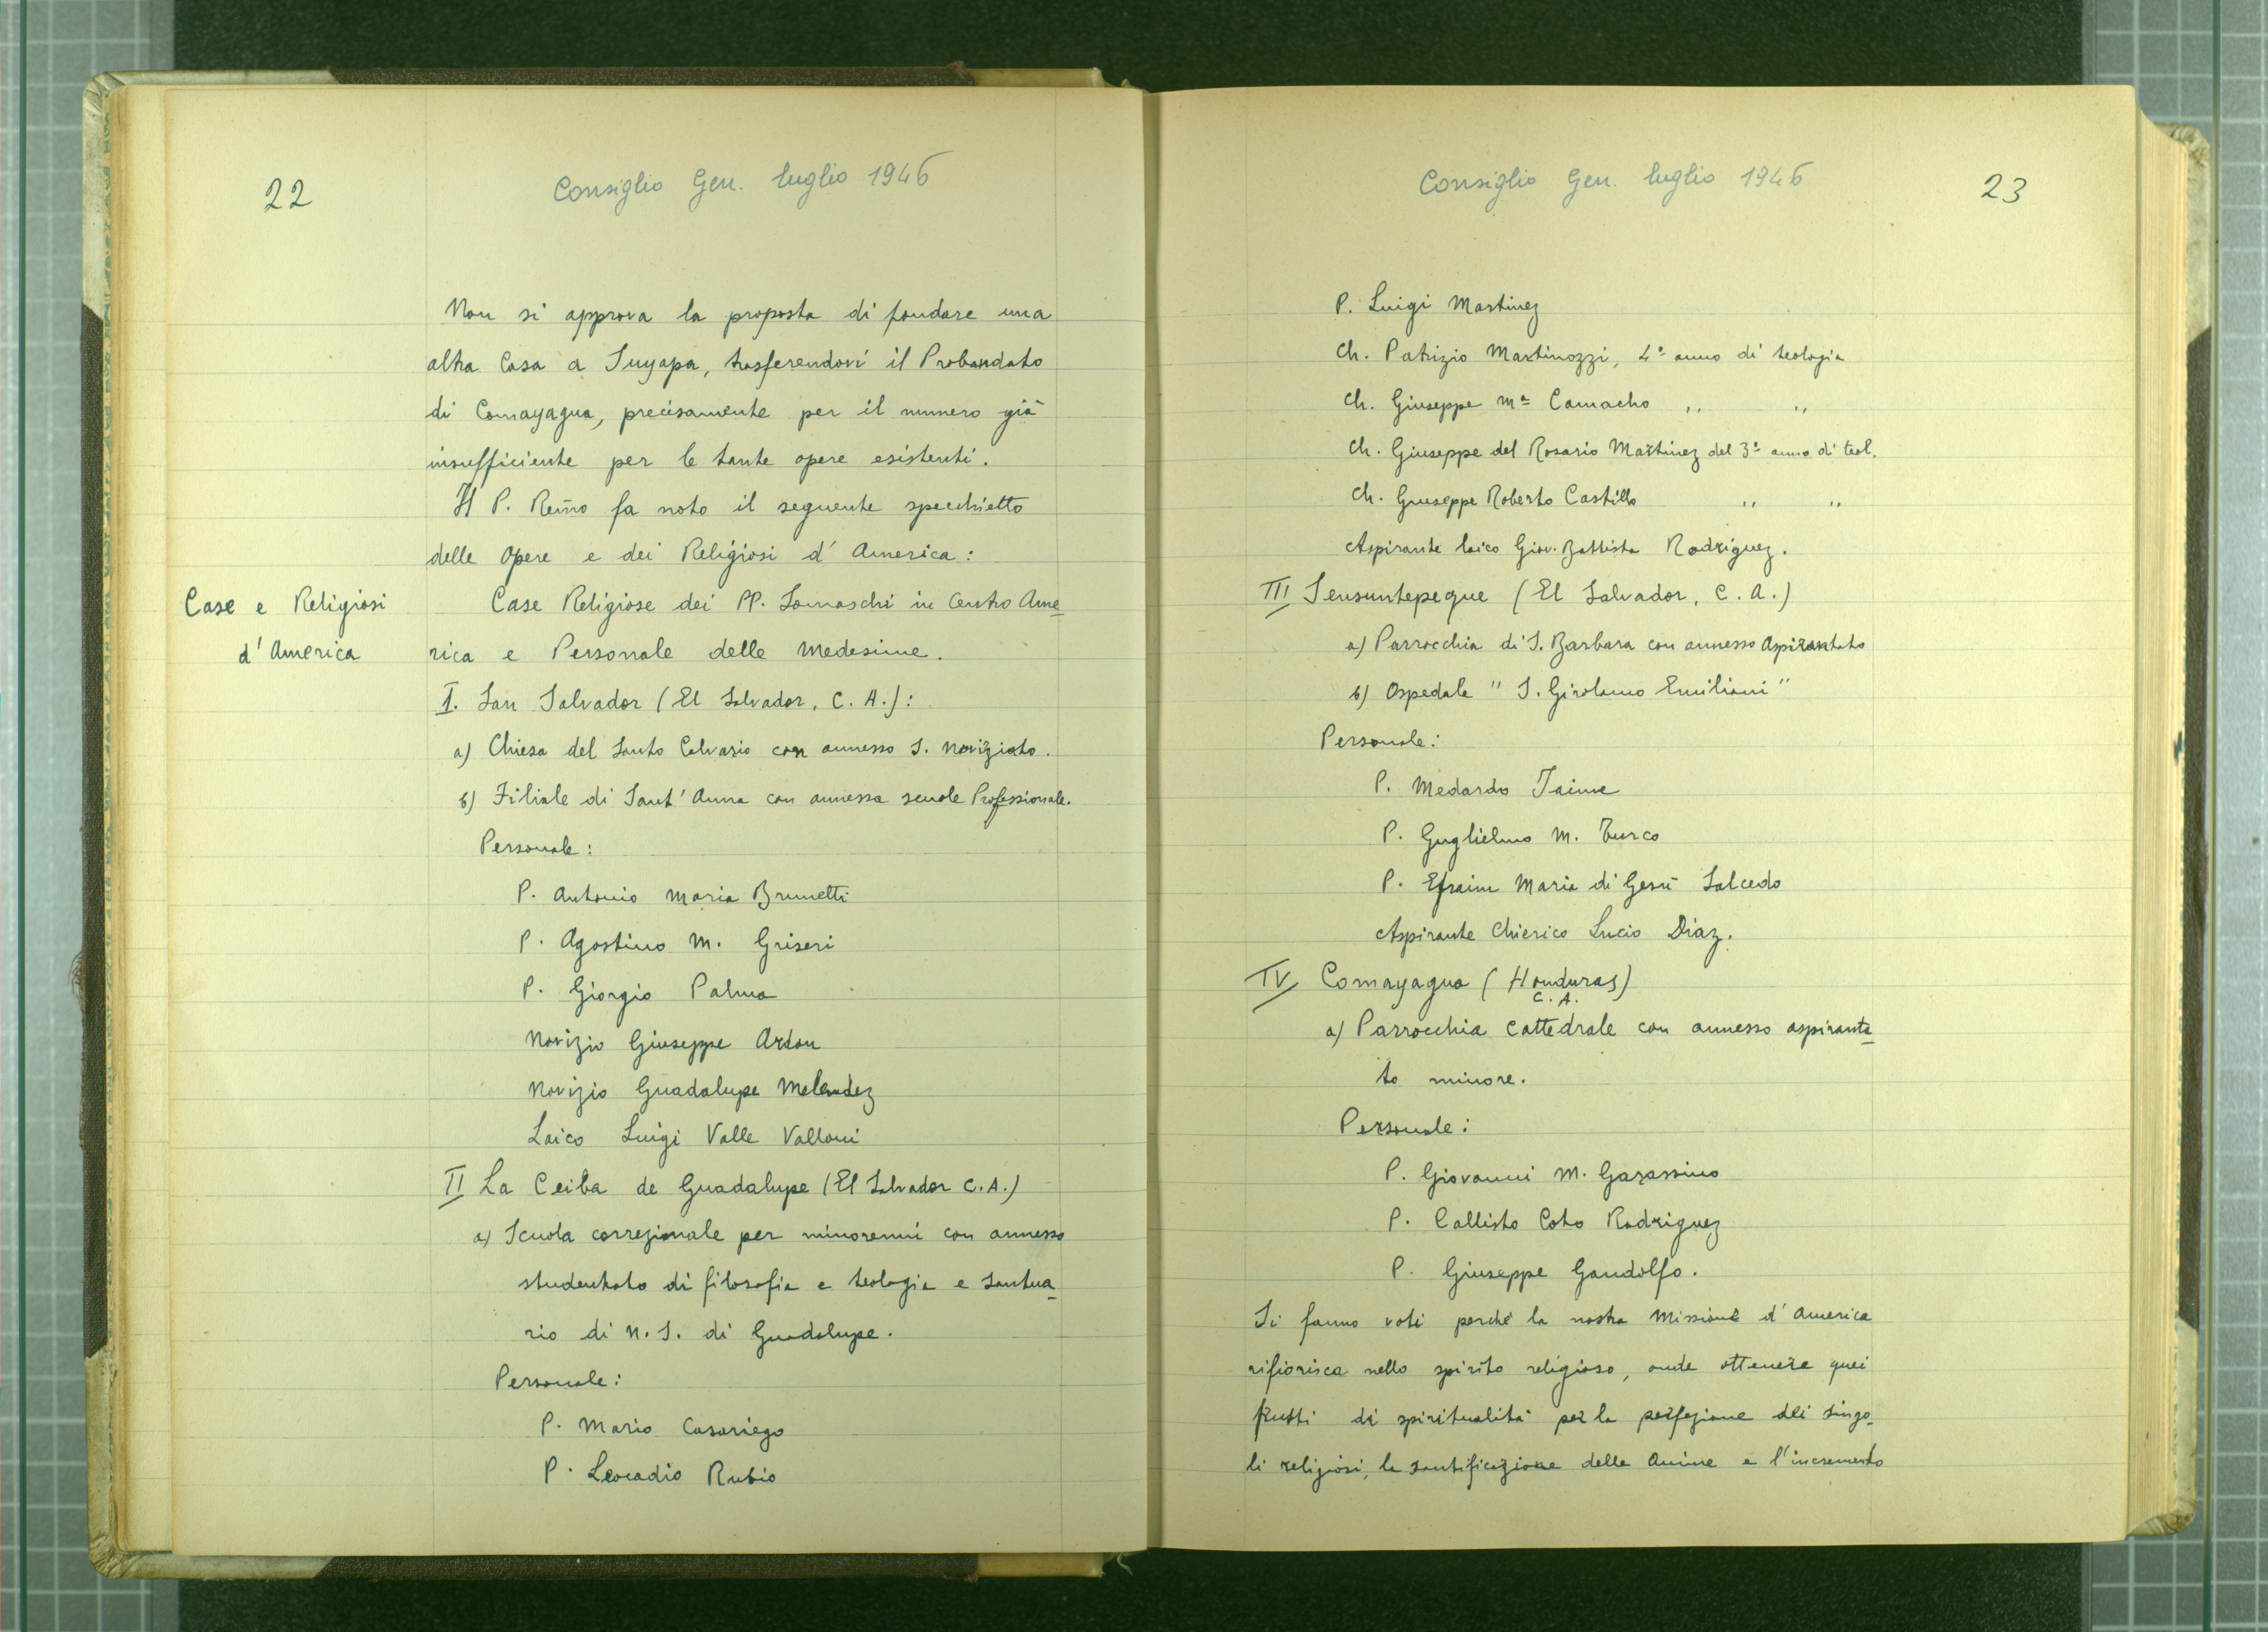 22
Consiglio Gen. luglio 1946
Non si approva la proposta di fondare una
altra Casa a Suyapa, trasferendovi il Probandato
di Comayagua, precisamente per il numero già
insufficiente per le tante opere esistenti.
Il P. Rev̄mo fa noto il seguente specchietto
delle Opere e dei Religiosi d'America:
Case e Religiosi
d'America
Case Religiose dei PP. Somaschi in Centro Ame
rica e Personale delle Medesime.
I. San Salvador (El Salvador, C. A.):
a) Chiesa del Santo Calvario con annesso S. Noviziato.
b) Filiale di Sant'Anna con annessa scuole Professionale.
Personale:
P. Antonio Maria Brunetti
P. Agostino M. Griseri
P. Giorgio Palma
Novizio Giuseppe Ardon
Novizio Guadalupe Melendez
Laico Luigi Valle Valloni
II La Ceiba de Guadalupe (El Salvador C.A.)
a) Scuola correzionale per minorenni con annesso
studentato di filosofia e teologia e Santua
rio di N. S. di Guadalupe.
Personale:
P. Mario Casariego
P. Leocadio Rubio
Consiglio Gen. luglio 1946
23
P. Luigi Martinez
Ch. Patrizio Martinozzi, 4º anno di teologia
Ch. Giuseppe Mª Camacho ,, ,,
Ch. Giuseppe del Rosario Martinez del 3º anno di teol.
Ch. Giuseppe Roberto Castillo ,, ,,
Aspirante laico Giov. Battista Rodriguez.
III Sensuntepeque (El Salvador, C. A.)
a) Parrocchia di S. Barbara con annesso Aspirantato
b) Ospedale "S. Girolamo Emiliani"
Personale:
P. Medardo Jaime
P. Guglielmo M. Turco
P. Efraim Maria di Gesù Salcedo
Aspirante Chierico Lucio Diaz.
IV Comayagua (Honduras)
C. A.
a) Parrocchia Cattedrale con annesso aspiranta
to minore.
Personale:
P. Giovanni M. Garassino
P. Callisto Coto Rodriguez
P. Giuseppe Gandolfo.
Si fanno voti perchè la nostra Missione d'America
rifiorisca nello spirito religioso, onde ottenere quei
frutti di spiritualità per la perfezione dei singo-
li religiosi, la santificazione delle Anime e l'incremento